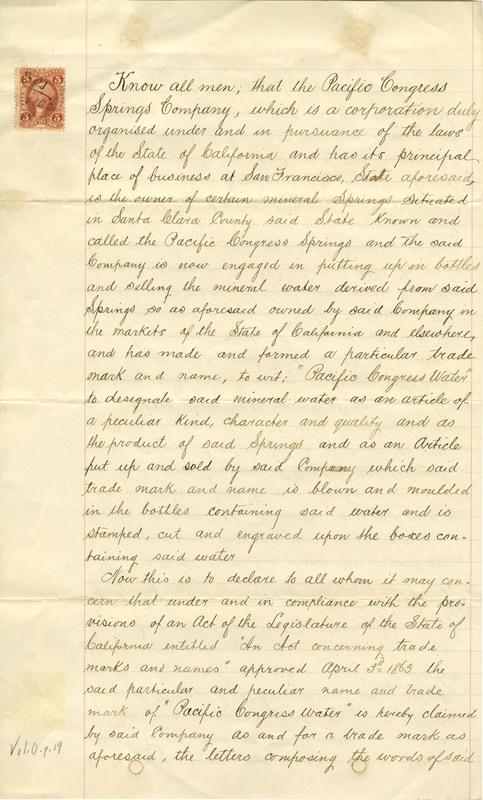 Know all men, that the Pacific Congress
Springs Company, which is a corporation duly
organised under and in pursuance of the laws
of the State of California and has its principal
place of business at San Francisco, State aforesaid,
is the owner of certain mineral Springs situated
in Santa Clara County said State known and
called the Pacific Congress Springs and the said
Company is now engaged in putting up in bottles
and selling the mineral water derived from said
Springs so as aforesaid owned by said Company in
the markets of the State of California and elsewhere,
and has made and formed a particular trade
mark and name, to wit; "Pacific Congress Water"
to designate said mineral water as an article of
a peculiar kind, character and quality and as
the product of said Springs and as an Article
put up and sold by said Company which said
trade mark and name is blown and moulded
in the bottles containing said water and is
stamped, cut and engraved upon the boxes con-
taining said water
Now this is to declare to all whom it may con-
cern that under and in compliance with the pro-
visions of an Act of the Legislature of the State of
California entitled "An Act concerning trade
marks and names" approved April 3d 1863 the
said particular and peculiar name and trade
mark of "Pacific Congress Water" is hereby claimed
by said Company as and for a trade mark as
aforesaid, the letters composing the words of said
Vol. O. p. 19
5 5
5 5